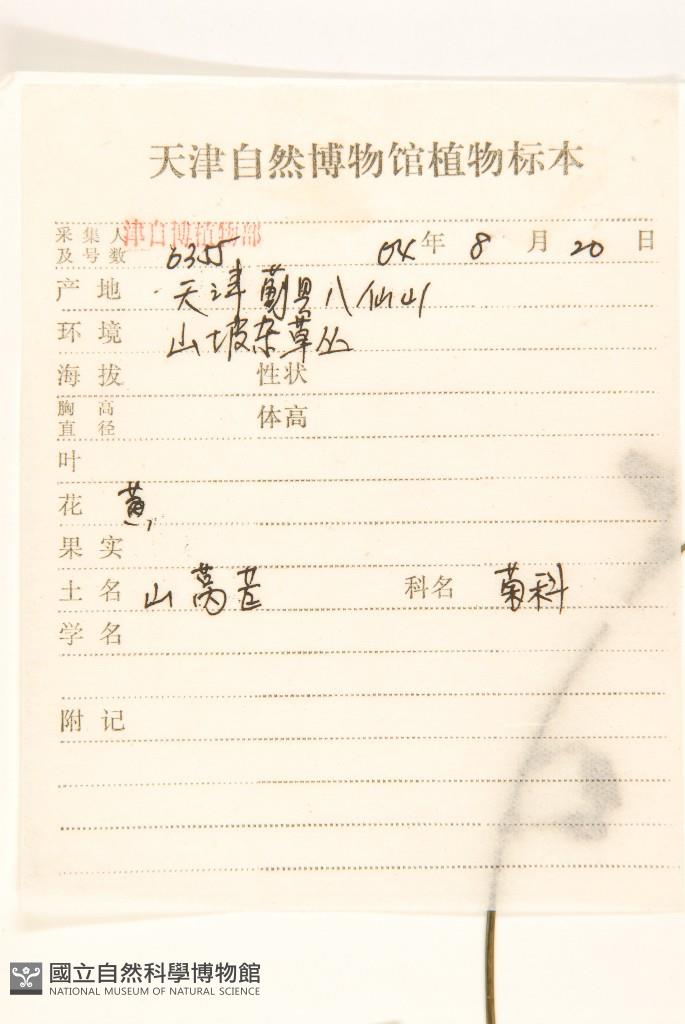 天津自然博物馆植物标本
采集人及号数 津自博植物部 6355 04年 8 月 20 日
产地 天津蓟县八仙山
环境 山坡杂草丛
海拔 性状
胸高直径 体高
叶
花 黄
果实
土名 山莴苣 科名 菊科
学名
附记
國立自然科學博物館
NATIONAL MUSEUM OF NATURAL SCIENCE